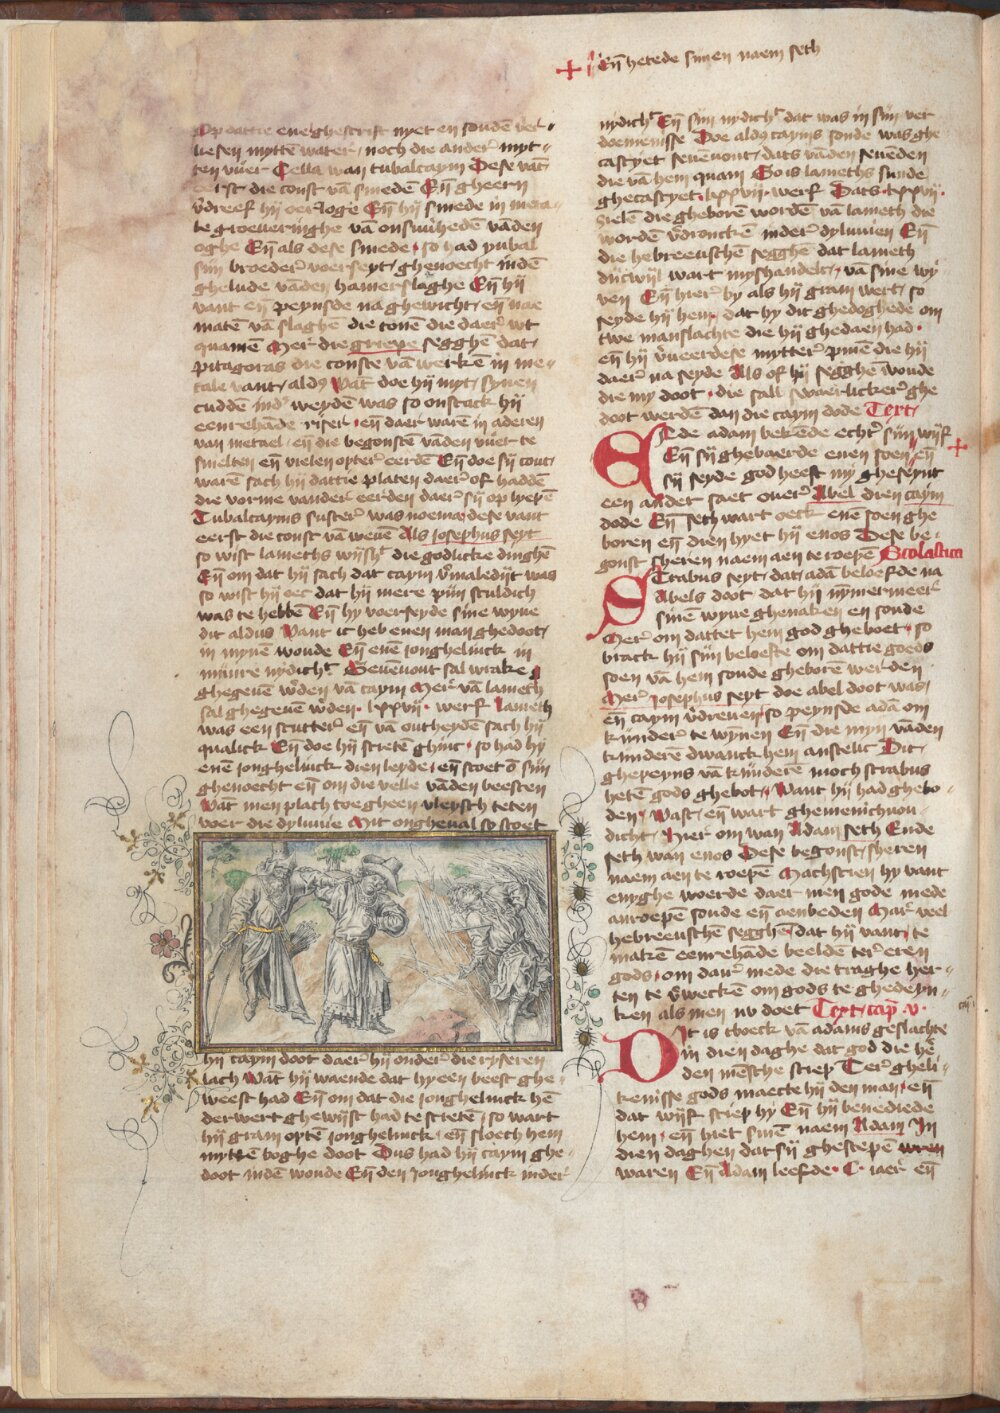 En̄ hetede sinen naem seth
Op dattie enelghescrift nyet en soudē ver
liesen mytten water, noch die ander myt
ten vuer Cella wan tubalcaym Dese vāt
eerst die const vā smedē En̄ gheern
v̄dreef hij oerloge En̄ hij smede in meta
be groeueringhe vā onsuuhedē vāden
oghe En̄ als dese smede, so had yubal
sijn broeder voerseyt, ghenoecht indē
ghelude vāden hamerslaghe En̄ hij
vant en̄ peynsde na ghewicht, en̄ nae
matē vā slaghe die tonē die daer wt
quamē Mer die griexe segghē dat,
pitagoras die conste vā werkē in me
tale vant, aldꝰ Wāt doe hij myt synen
cuddē indꝰ weydē was so onstack hij
eenrehāde riser, en̄ daer warē in aderen
van metael, en̄ die begonstē vāden vuer te
smelten en̄ vielen opter eerdē En̄ doe sij cout
warē sach hij dattie platen daer of haddē
die vorme vander eerden daer sij op lyepē
Tubalcayms suster was noema dese vant
eerst die const vā weuē Als Josephus seyt
so wist lameths wijsh̉ die godlicke dinghē
En̄ om dat hij sach dat caym v̄maledijt was
so wist hij oec dat hij mere pijn sculdich
was te hebbē En̄ hy voerseyde sine wyue
dit aldus Want ic heb enen man ghedoot,
in mynē wonde En̄ enē jonghelinck in
mijnre nydich̉ Seuēuout sal wrake
ghegeuē w̄den vā caym Mer vā lameth
sal ghegeuē w̄den. lxxvij. werf Lameth
was een scutter en̄ vā outheyden sach hij
qualick En̄ doe hij scietē ghinc, so had hy
enē jonghelinck dien leyde, en̄ scoet ō sijn
ghenoecht en̄ om die velle vāden beesten
Wāt men plach toe gheen vleysch teten
voer die dyluuie Mit ongheual so scoet
hij caym doot daer hij onder die ryseren
lach Wāt hij waende dat hy een beest ghe
weest had En̄ om dat die jonghelinck hē
derwert ghewijst had te scietē, so wart
hij gram optē jonghelinck, en̄ sloech hem
myttē boghe doot Dus had hij caym ghe
doot indē wonde En̄ den Jonghelinck inder
nydich̉ En̄ sijn nydich̉ dat was in sijn ver
doemenisse Doe aldꝰ cayms sonde was ghe
castyet seuenuout, dats vādē seuēden
die vā hem quam So is lameths sunde
ghecastyet. lxxvij. werf Dats. lxxvij.
zielē die gheborē wordē vā lameth die
wordē v̄dronckē inder dyluuien En̄
die hebreeuschē segghē dat lameth
dicwijl wart myshandelt, vā sine wy
ven En̄ hier by als hij gram wert, so
seyde hij hem, dat hy dit ghedoghede om
twe manslachte die hij ghedaen had.
en̄ hij v̄veerdese mytter pinē die hij
daer na seyde Als of hij segghē woude
die my doot, die sall swaerlicker ghe
doot werdē dan die caym dode Text,
Ede adam bekēde echt sijn wijf
En̄ sij ghebaerde enen soen, en̄
sij seyde god heeft my gheseynt
een ander saet ouer Abel dien caym
dode En̄ seth wart oeck enē soen ghe
boren en̄ dien hyet hij enos Dese be
gonst sheren naem aen te roepē Scolastica
Strabus seyt, dat adā beloefde na
Abels doot dat hij nymmermeer
sinē wyue ghenaken en soude
Mer om dattet hem god gheboet, so
brack hij sijn belofte om dattie goeds
soen vā hem soude gheborē werden
Mer Josephus seyt doe abel doot was,
en̄ caym v̄dreuen, so peynsde adā om
kijnder te wynnen En̄ die myn vāden
kinderē dwanck hem anstelic Dit,
ghepeyns vā kijnderē moch strabus
hetē gods ghebot, Want hij had ghebo
den, Wast, en̄ wart ghemenichuou
dicht, Hier om wan Adam seth Ende
seth wan enos Dese begonst, sheren
naem aen te roepē Machscien hy vant
enyghe woerde daer men gode mede
anroepē soude en̄ aenbeden Mar veel
hebreeuschē segghē dat hij vant, te
makē eenrehāde beeldē ter eren
gods, om daer mede die traghe her
ten te v̄weckē om gods te ghedeyn
ken als men nv doet Text, cap̄. v.
Dit is tboeck vā adams geslachte
in dien daghe dat god die hē
den mēsche sciep Ter gheli
kenisse gods maecte hij den man, en̄
dat wijf sciep hy En̄ hij benediede
hem, en̄ hiet sinē naem Adam In
dien daghen dat sij ghescepē waren
waren En̄ Adam leefde. C. iaer en̄